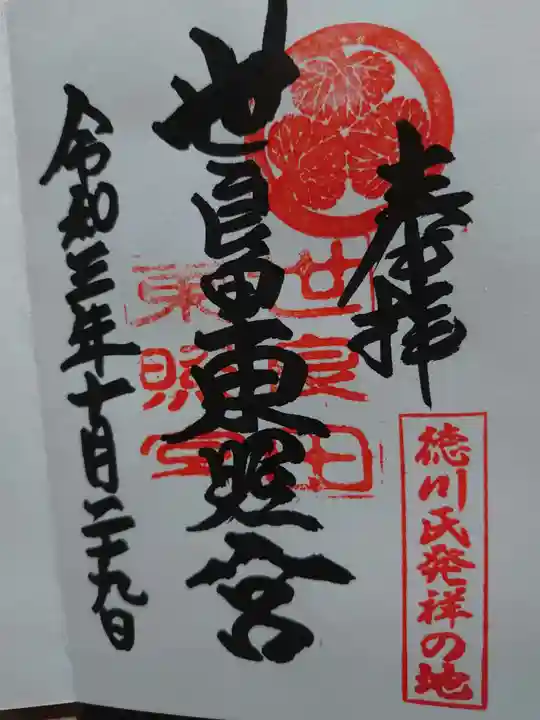 奉拝
徳川氏発祥の地
世良田東照宮
世良田
東照宮
令和三年十月二十九日